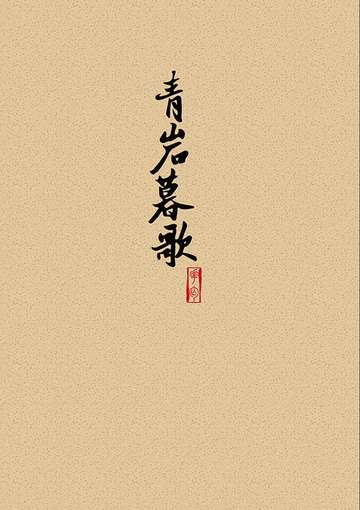 青岩暮歌